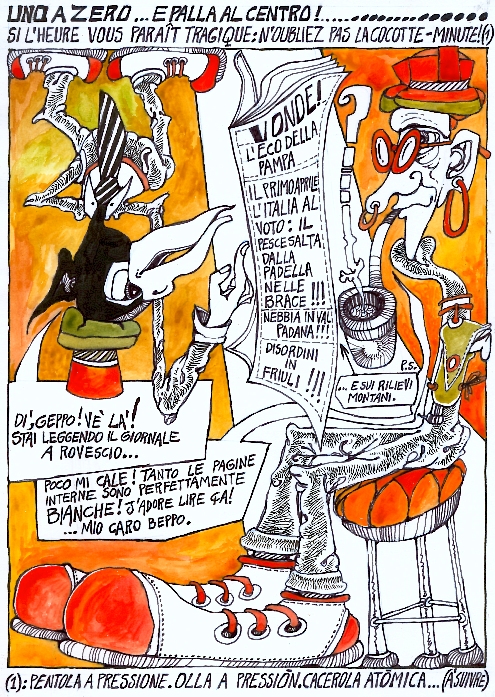 UNO A ZERO ... E PALLA AL CENTRO!...............
SI L'HEURE VOUS PARAÎT TRAGIQUE: N'OUBLIEZ PAS LA COCOTTE-MINUTE!(1)
VONDE!
L'ECO DELLA
PAMPA
IL PRIMO APRILE
L'ITALIA AL
VOTO: IL
PESCE SALTA
DALLA
PADELLA
NELLE
BRACE!!!
NEBBIA IN VAL
PADANA!!!
DISORDINI
IN
FRIULI!!!
?
P.S.
... E SUI RILIEVI
MONTANI.
DI! GEPPO! VÈ LÀ!
STAI LEGGENDO IL GIORNALE
A ROVESCIO...
POCO MI CALE! TANTO LE PAGINE
INTERNE SONO PERFETTAMENTE
BIANCHE! J'ADORE LIRE ÇA!
... MIO CARO BEPPO.
(1): PENTOLA A PRESSIONE. OLLA A PRESSIÒN. CACEROLA ATÒMICA... (A SUIVRE)